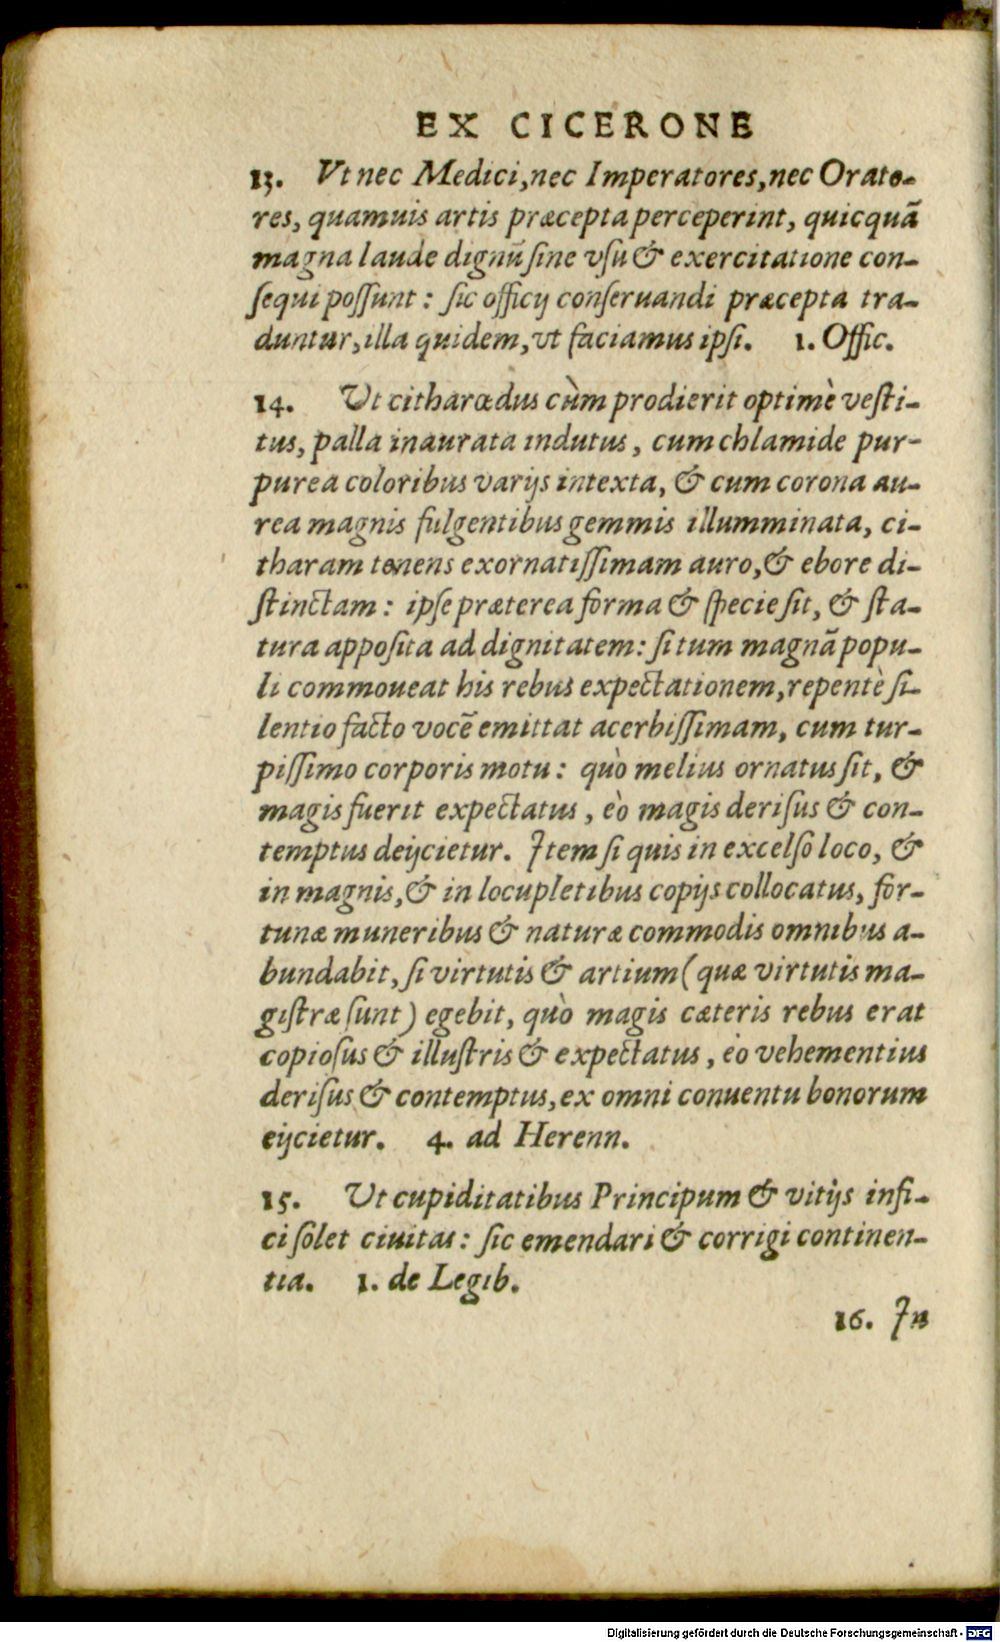 EX CICERONE
13. Vt nec Medici, nec Imperatores, nec Orato-
res, quamuis artis præcepta perceperint, quicquã
magna laude dignũ ſine vſu & exercitatione con-
ſequi poſſunt: ſic officij conſeruandi præcepta tra-
duntur, illa quidem, vt faciamus ipſi. 1. Offic.
14. Ut citharœdus cùm prodierit optimè veſti-
tus, palla inaurata indutus, cum chlamide pur-
purea coloribus varijs intexta, & cum corona au-
rea magnis fulgentibus gemmis illumminata, ci-
tharam tenens exornatiſſimam auro, & ebore di-
ſtinctam: ipſe præterea forma & ſpecie ſit, & ſta-
tura appoſita ad dignitatem: ſi tum magnã popu-
li commoueat his rebus expectationem, repentè ſi-
lentio facto vocẽ emittat acerbiſſimam, cum tur-
piſſimo corporis motu: quò melius ornatus ſit, &
magis fuerit expectatus, eò magis deriſus & con-
temptus deijcietur. Item ſi quis in excelſo loco, &
in magnis, & in locupletibus copijs collocatus, for-
tunæ muneribus & naturæ commodis omnibus a-
bundabit, ſi virtutis & artium (quæ virtutis ma-
giſtræ ſunt) egebit, quò magis cæteris rebus erat
copioſus & illuſtris & expectatus, eò vehementius
deriſus & contemptus, ex omni conuentu bonorum
eijcietur. 4. ad Herenn.
15. Ut cupiditatibus Principum & vitijs infi-
ci ſolet ciuitas: ſic emendari & corrigi continen-
tia. 1. de Legib.
16. In
Digitalisierung gefördert durch die Deutsche Forschungsgemeinschaft - DFG